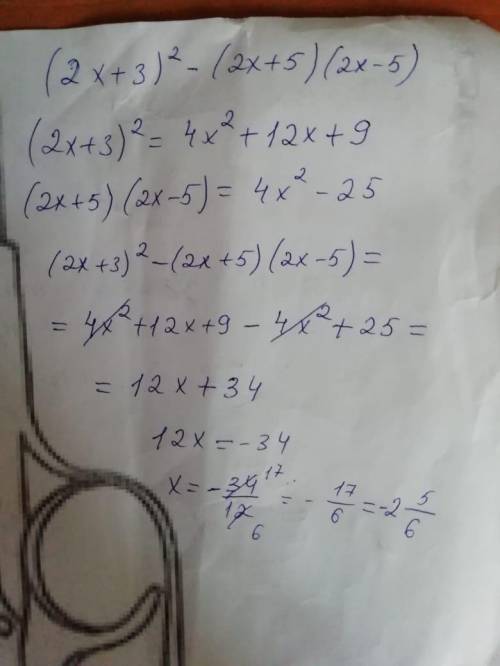 (2x+3)² - (2x+5)(2x-5)
(2x+3)² = 4x² + 12x + 9
(2x+5)(2x-5) = 4x² - 25
(2x+3)² - (2x+5)(2x-5) =
= 4x² + 12x + 9 - 4x² + 25 =
= 12x + 34
12x = -34
x = - 34 17 / 12 6 = - 17/6 = -2 5/6